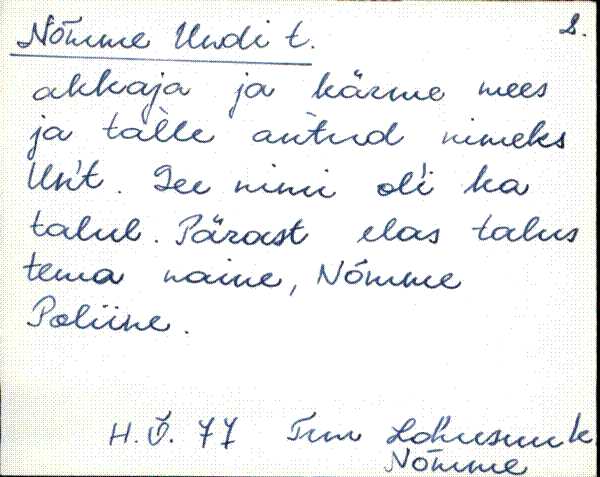 Nõmme Undi t. 2.
akkaja ja kärme mees
ja talle antud nimeks
Un't. See nimi ol'i ka
talul. Pärast elas talus
tema naine, Nõmme
Poliine.
H. Õ. 77 Trm Lohusuu k
Nõmme